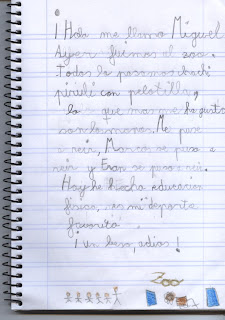 ¡Hola me llamo Miguel
Ayer fuimos al zoo.
Todos lo pasamos chachi
pirili con pelotilla,
lo que mas me ha gusta
son las monos. Me puse
a reir, Marco se puso a
reir y Eran se puso a reir.
Hoy he hecho educacion
fisica, es mi deporte
favorito.
¡Un beso, adios!
Zoo